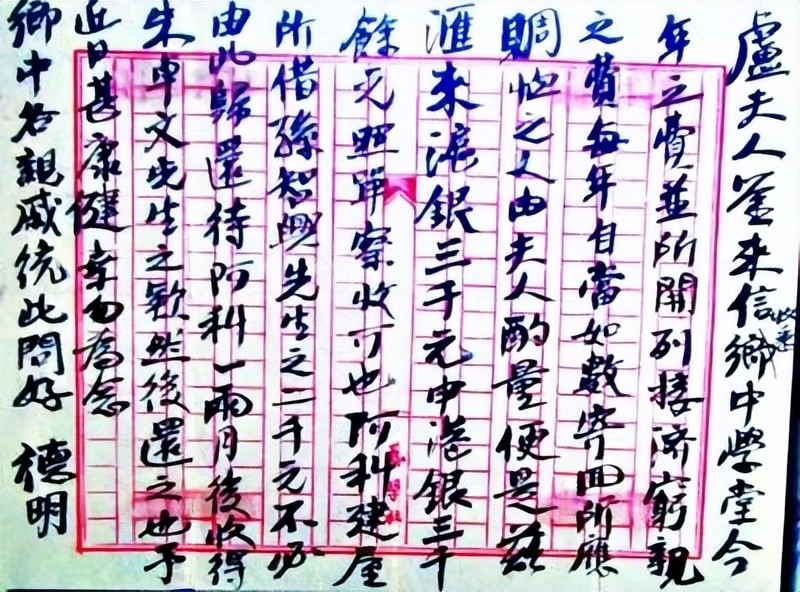 盧夫人鉴來信收悉鄉中學堂今
年之費並所開列接济窮親
之費每年自當如數寄回所應
賙恤之人由夫人酌量便是兹
滙來滬銀三千元申港銀三千
餘元照单察收可也阿科建屋
所借孫智興先生之二千元不必
由此歸還待阿科一兩月後收得
朱卓文先生之欵然後還之也予
近日甚康健幸勿為念
鄉中各親戚统此問好 德明